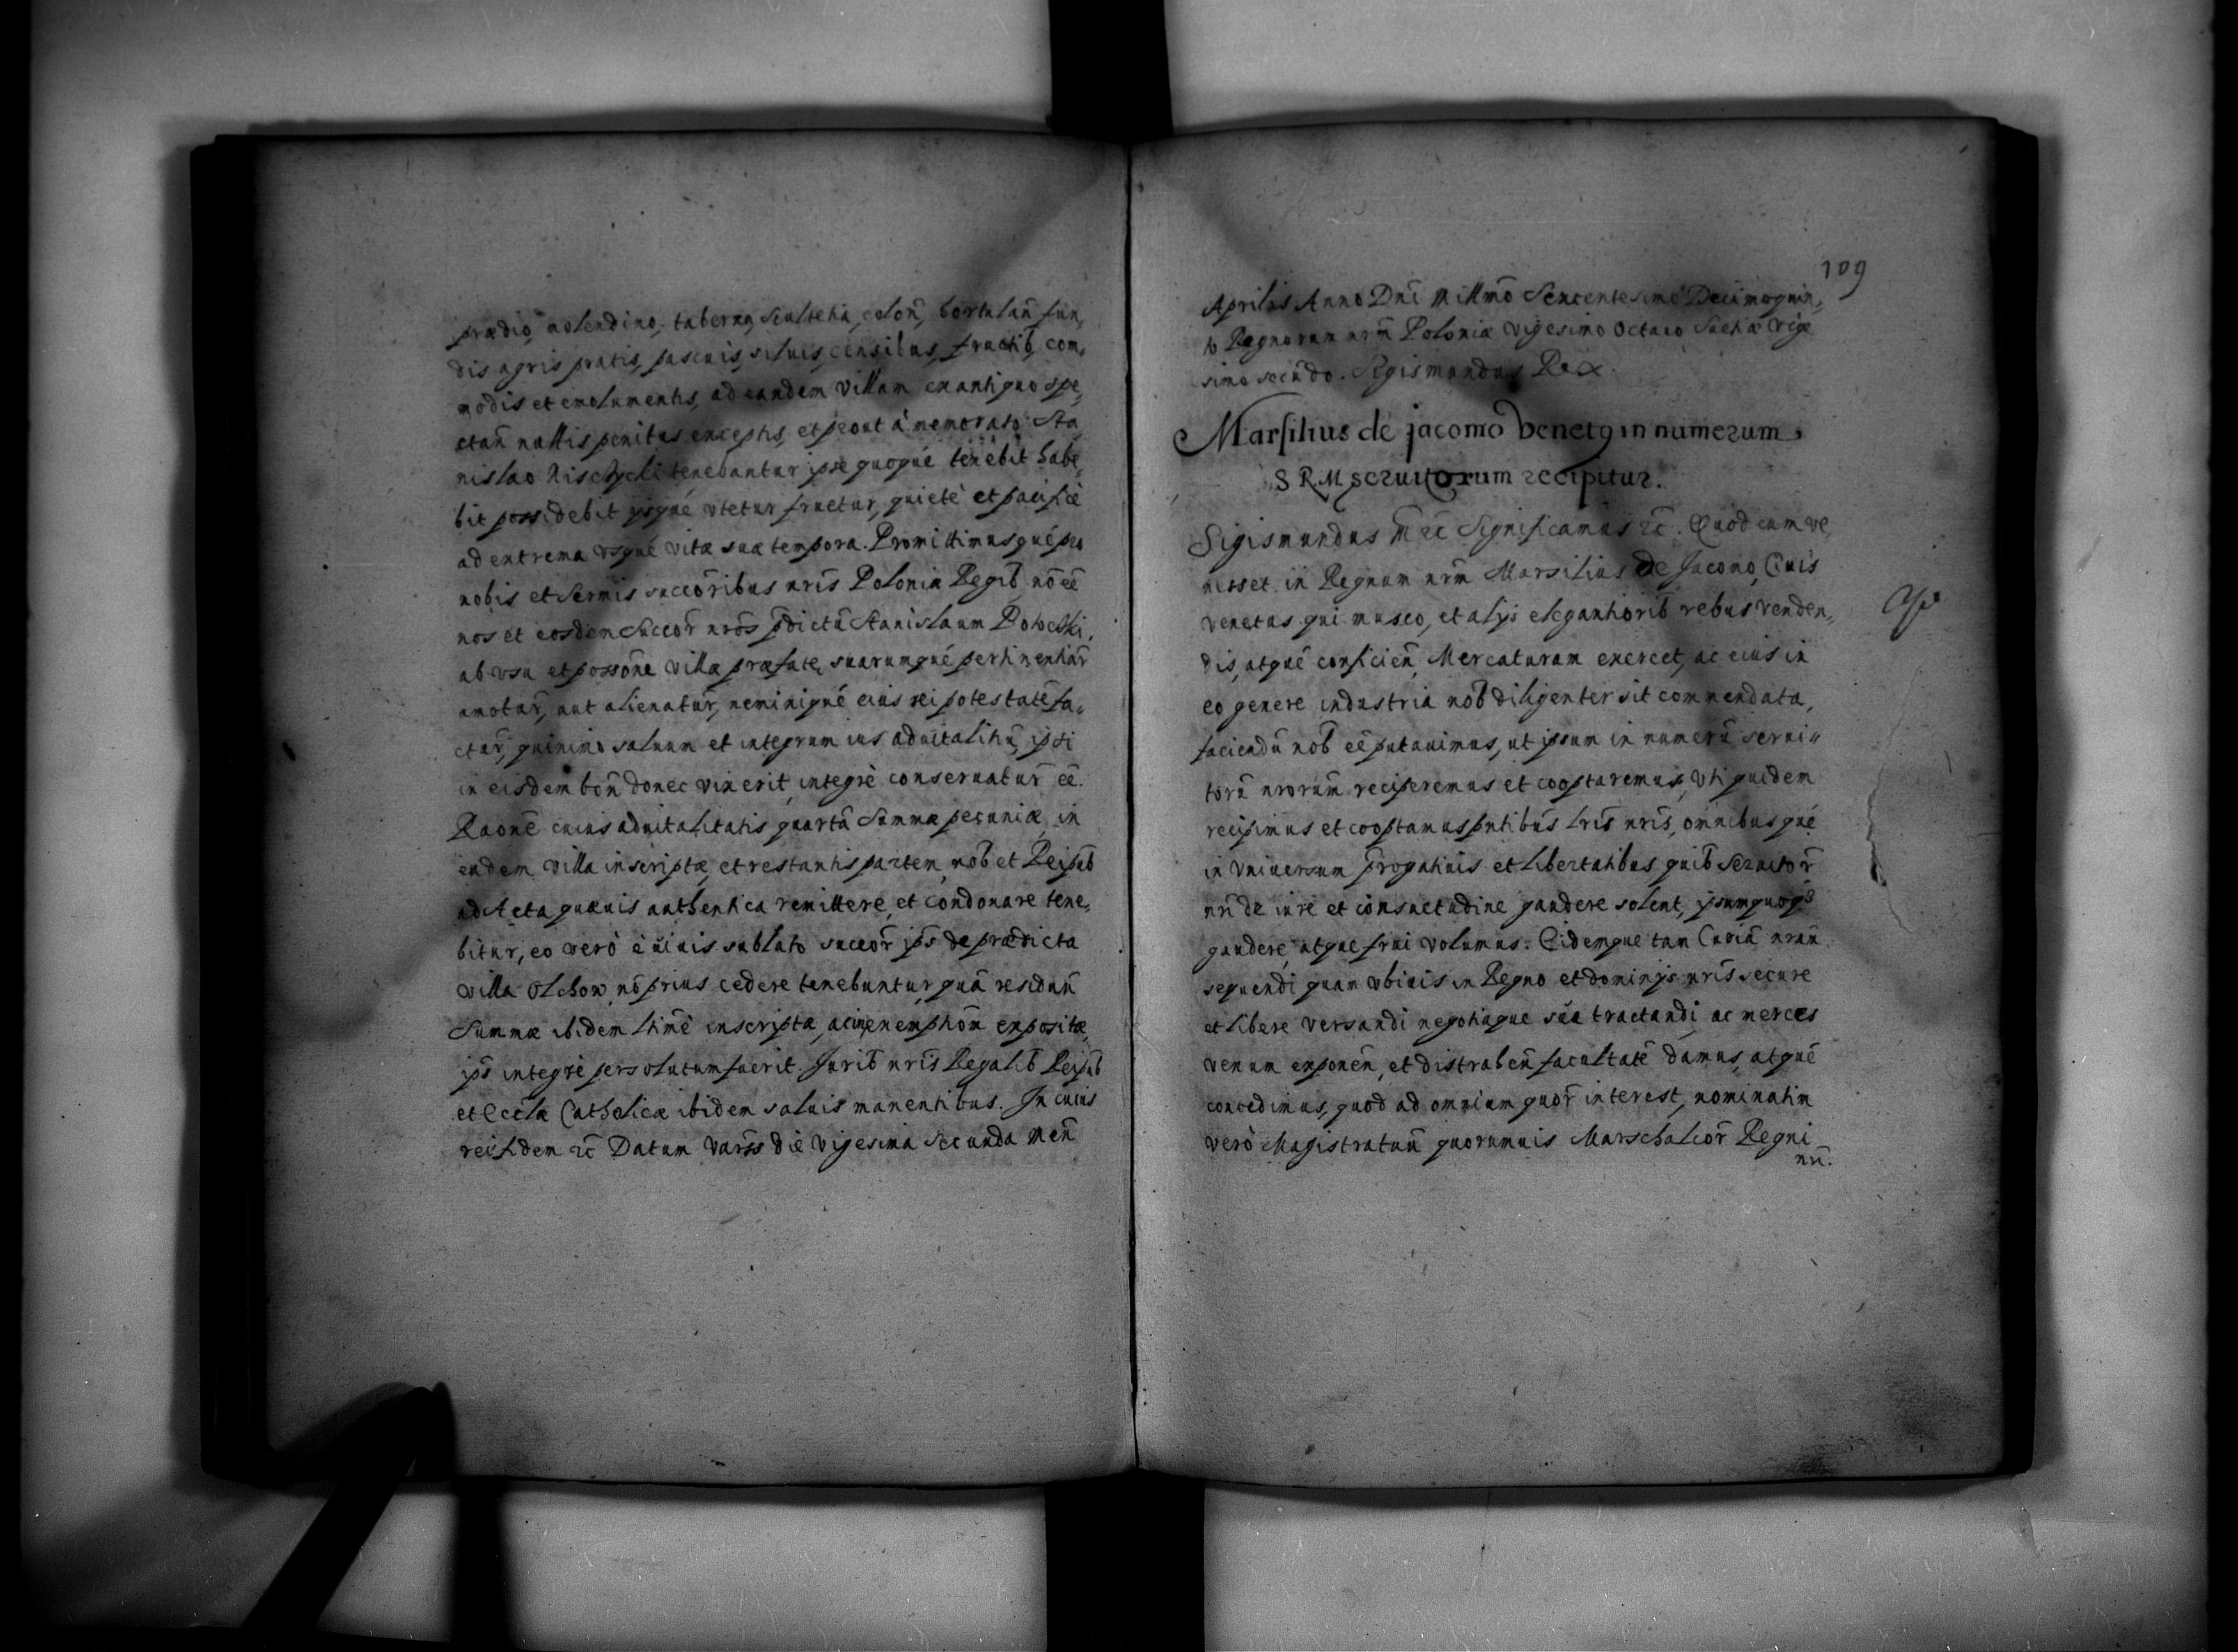 prædio, molendino, taberna, scultetia, colon̄, hortulan̄ fun,
dis agris pratis, pascuis, siluis, censibus, fructib̄, com,
modis et emolumentis, ad eandem villam ex antiquo spe,
ctan̄ nullis penitus exceptis, et prout à memorato Sta,
nislao tenebantur ipse quoqué tenebit habe,
bit possidebit ijsqué vtetur fruetur, quietè et pacificè
ad extrema vsqué vitæ suæ tempora. Promittimusqué pro
nobis et Sermis succōribus nrīs Poloniæ Regib̄ nō eē
nos et eosdem Succōr nrōs p̄dictū Stanislaum Potocki,
ab vsu et possōne villæ præfatę, suarumqué pertinentiar̄
amotur̄, aut alienatur̄, neminiqué eius rei potestatē fa,
ctur̄, quinimo saluum et integrum ius aduitalitiū ipsi
in eisdem bon̄ donec vixerit, integrè conseruatur̄ eē.
Raōne cuius aduitalitatis quartā Summæ pecuniæ in
eadem villa inscriptæ, et restantis partem nob̄ et Reipub̄
ad Acta quæuis authentica remittere, et condonare tene,
bitur, eo verò è viuis sublato succōr ips̄ de prædicta
villa Olchow nō prius cedere tenebuntur, quā residuū
Summæ ibidem ltimè inscriptæ, ac in exemptiōn expositæ,
ips̄ integrè persolutum fuerit. Jurib̄ nrīs Regalib̄ Reipub̄
et Eccłæ Catholicæ ibidem saluis manentibus. In cuius
rei fidem zc̄ Datum Vars̄ diē Vigesima Secunda Men̄
109
Aprilis Anno Dnī Millmō Sexcentesimo Decimoquin,
to Regnorum nrm̄ Poloniæ Vigesimo Octauo Suetiæ Vige
simo secūdo. Sigismundus Rex.
Marsilius de jacomo Venetq in numerum
S R M seruitorum recipitur.
Sigismundus III zc̄ Significamus zc̄. Quod cum ve,
nisset in Regnum nrm̄ Marsilius de Jacomo, Ciuis
Venetus qui museo, et alijs elegantiorib̄ rebus venden,,
dis, atqué conficien̄, Mercaturam exercet, ac eius in
eo genere industria nob̄ diligenter sit commendata,
faciendū nob̄ eē putauimus, ut ipsum in numerū serui,,
torū nrorum̄ reciperemus et cooptaremus, Vti quidem
recipimus et cooptamus pn̄tibus lrīs nrīs, omnibusqué
in vniuersum p̄rogatiuis et libertatibus quib̄ Seruitor̄
nrī de iure et consuetudine gaudere solent, ipsum quoqȝ
gaudere, atque frui volumus. Eidemque tam Curiā nram̄
sequendi quam vbiuis in Regno et dominijs nrīs secure
et libere versandi negotiaque sua tractandi ac merces
venum exponen̄, et distrahen̄ facultatē damus, atqué
concedimus, quod ad omnium quor̄ interest, nominatim
verò Magistratuū quorumuis Marschalcor̄ Regni
nrī.